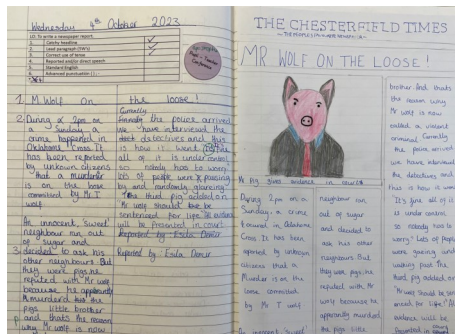 Wednesday 4th October 2023
LO: To write a newspaper report.
1. Catchy headline
2. Lead paragraph (5W's)
3. Correct use of tense
4. Reported and/or direct speech
5. Standard English
6. Advanced punctuation
1 M.Wolf On the loose!
2 During at 2pm on
Sunday a
crime happened in
Oklahoma It
has been reported
by unkown citizens
that a murderer
is on the loose
committed by Mr T
wolf
An innocent, sweet
neighbour ran out
of sugar and
3 decided to ask his
other neighbours. But
they were pigs he
refuted with Mr wolf
because he apparently
murderd the
pigs little brother
and thats the reason
why Mr wolf is now
Currently
the police arrived
we have interviewed the
detectives and this
is how it went "It's fine
all of it is under control
so nobody has to worry"
lots of people were
by and randomly glancing.
The third pig added on
Mr wolf should be
sentenced for life. All evidence
will be presented in court
Reported by: Esila Demir
THE CHESTERFIELD TIMES
MR WOLF ON THE LOOSE!
Mr Pig gives evidence in court
During 2pm on a
Sunday, a crime
It has been
reported by unknown
citizens that a
Murder is on the
loose commited
by Mr T wolf
An innocent sweet
neighbour ran
out of sugar
and decided to
ask his other
neighbours. But
they were pigs he
refuted with Mr
wolf because he
apparently murdered
the pigs little
brother. And thats
the reason why
Mr wolf is now
called a violent
criminal. Currently
the police arrived
we have interviewed
the detectives and
this is how it went
"It's fine all of it
is under control
so nobody has to
worry." Lots of people
were gazing and
walking past. The
third pig added on
"Mr wolf should be sen-
tenced for life." All
evidence will be
presented in court